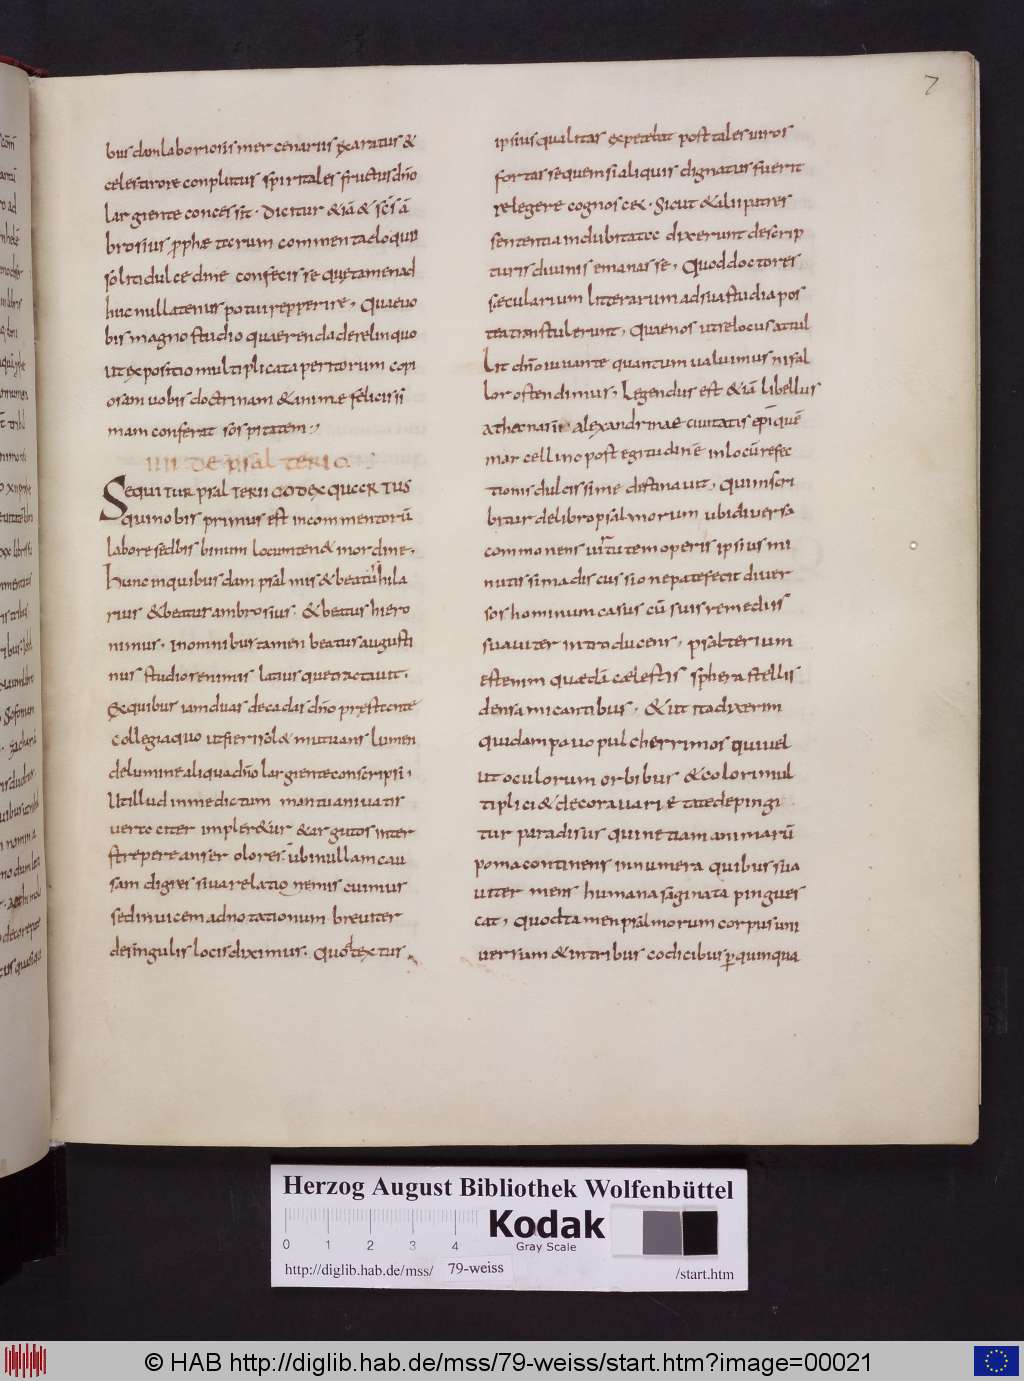 7
bus dam laboriosis mercenariis exaratus &
celesti rore conplutus spiritales fructus dn̄o
largiente concessit. Dicitur & iā & sc̄s ā
brosius p̱phe tecrum commenta eloquii
soliti dulcedine confecisse quę tamen ad
huc nullatenus potui repperire, Quae uo
bis magno studio quaerenda derelinquo
ut expositio multiplicata peritorum copi
osam uobis doctrinam & animae felicissi
mam conferat sospitatem;
IIII DE PSALTERIO
SEQUITUR PSALTERII CODEX QUARTUS
qui nobis primus est in commentorū
labore sed bis binum locum ten& in ordine.
hunc in quibusdam psalmis & beatus hila
rius & beatus ambrosius. & beatus hiero
nimus. In omnibus tamen beatus augusti
nus studiose nimis latius que tractauit.
Ex quibus iam duas decadas dn̄o pręstante
collegi a quo ut fieri sol& mutuans lumen
de lumine aliqua dn̄o largiente conscripsi,
Ut illud in me dictum mantuani uatis
uerte citer impler&ur & argutos inter
strepere anser olores. ubi nullam cau
sam digressiua relatione nemis cuimus
sed in uicem adnotationum breuiter
de singulis locis diximus. Quod textus
ipsius qualitas expetebat post tales uiros
fortasse quem si aliquis dignatus fuerit
relegere cognosc&. Sicut & alii patres
sententia indubitatae dixerunt de scrip
turis diuinis emanasse, Quod doctores
sęcularium litterarum ad sua studia pos
tea transtulerunt, Quae nos utre locus attul
lit dn̄o iuuante quantum ualuimus in sal
lo ostendimus, Legendus est & iā libellus
athanasii alexandrinae ciuitatis ep̄i quē
marcellino post egitudinē in locū refec
tionis dulcissime destinauit, Qui inscri
bitur de libro psalmorum ubi diuersa
commonens uirtutem operis ipsius mi
nutissima discussione patefecit diuer
sos hominum casus cū suis remediis
suauiter introducens, psalterium
est enim quaedā caelestis sphera stellis
densa micantibus, & ut ita dixerim
quidam pauo pulcherrimos qui uel
ut oculorum orbibus & colori mul
tiplici & decora uarietate depingi
tur paradisus quin etiam animarū
poma continens innumera quibus sua
uiter mens humana saginata pingues
cat, quod tamen psalmorum corpus uni
uersum & in tribus codicibus p̱ quinqua
Herzog August Bibliothek Wolfenbüttel
0 1 2 3 4
Kodak
Gray Scale
http://diglib.hab.de/mss/ 79-weiss /start.htm
© HAB http://diglib.hab.de/mss/79-weiss/start.htm?image=00021